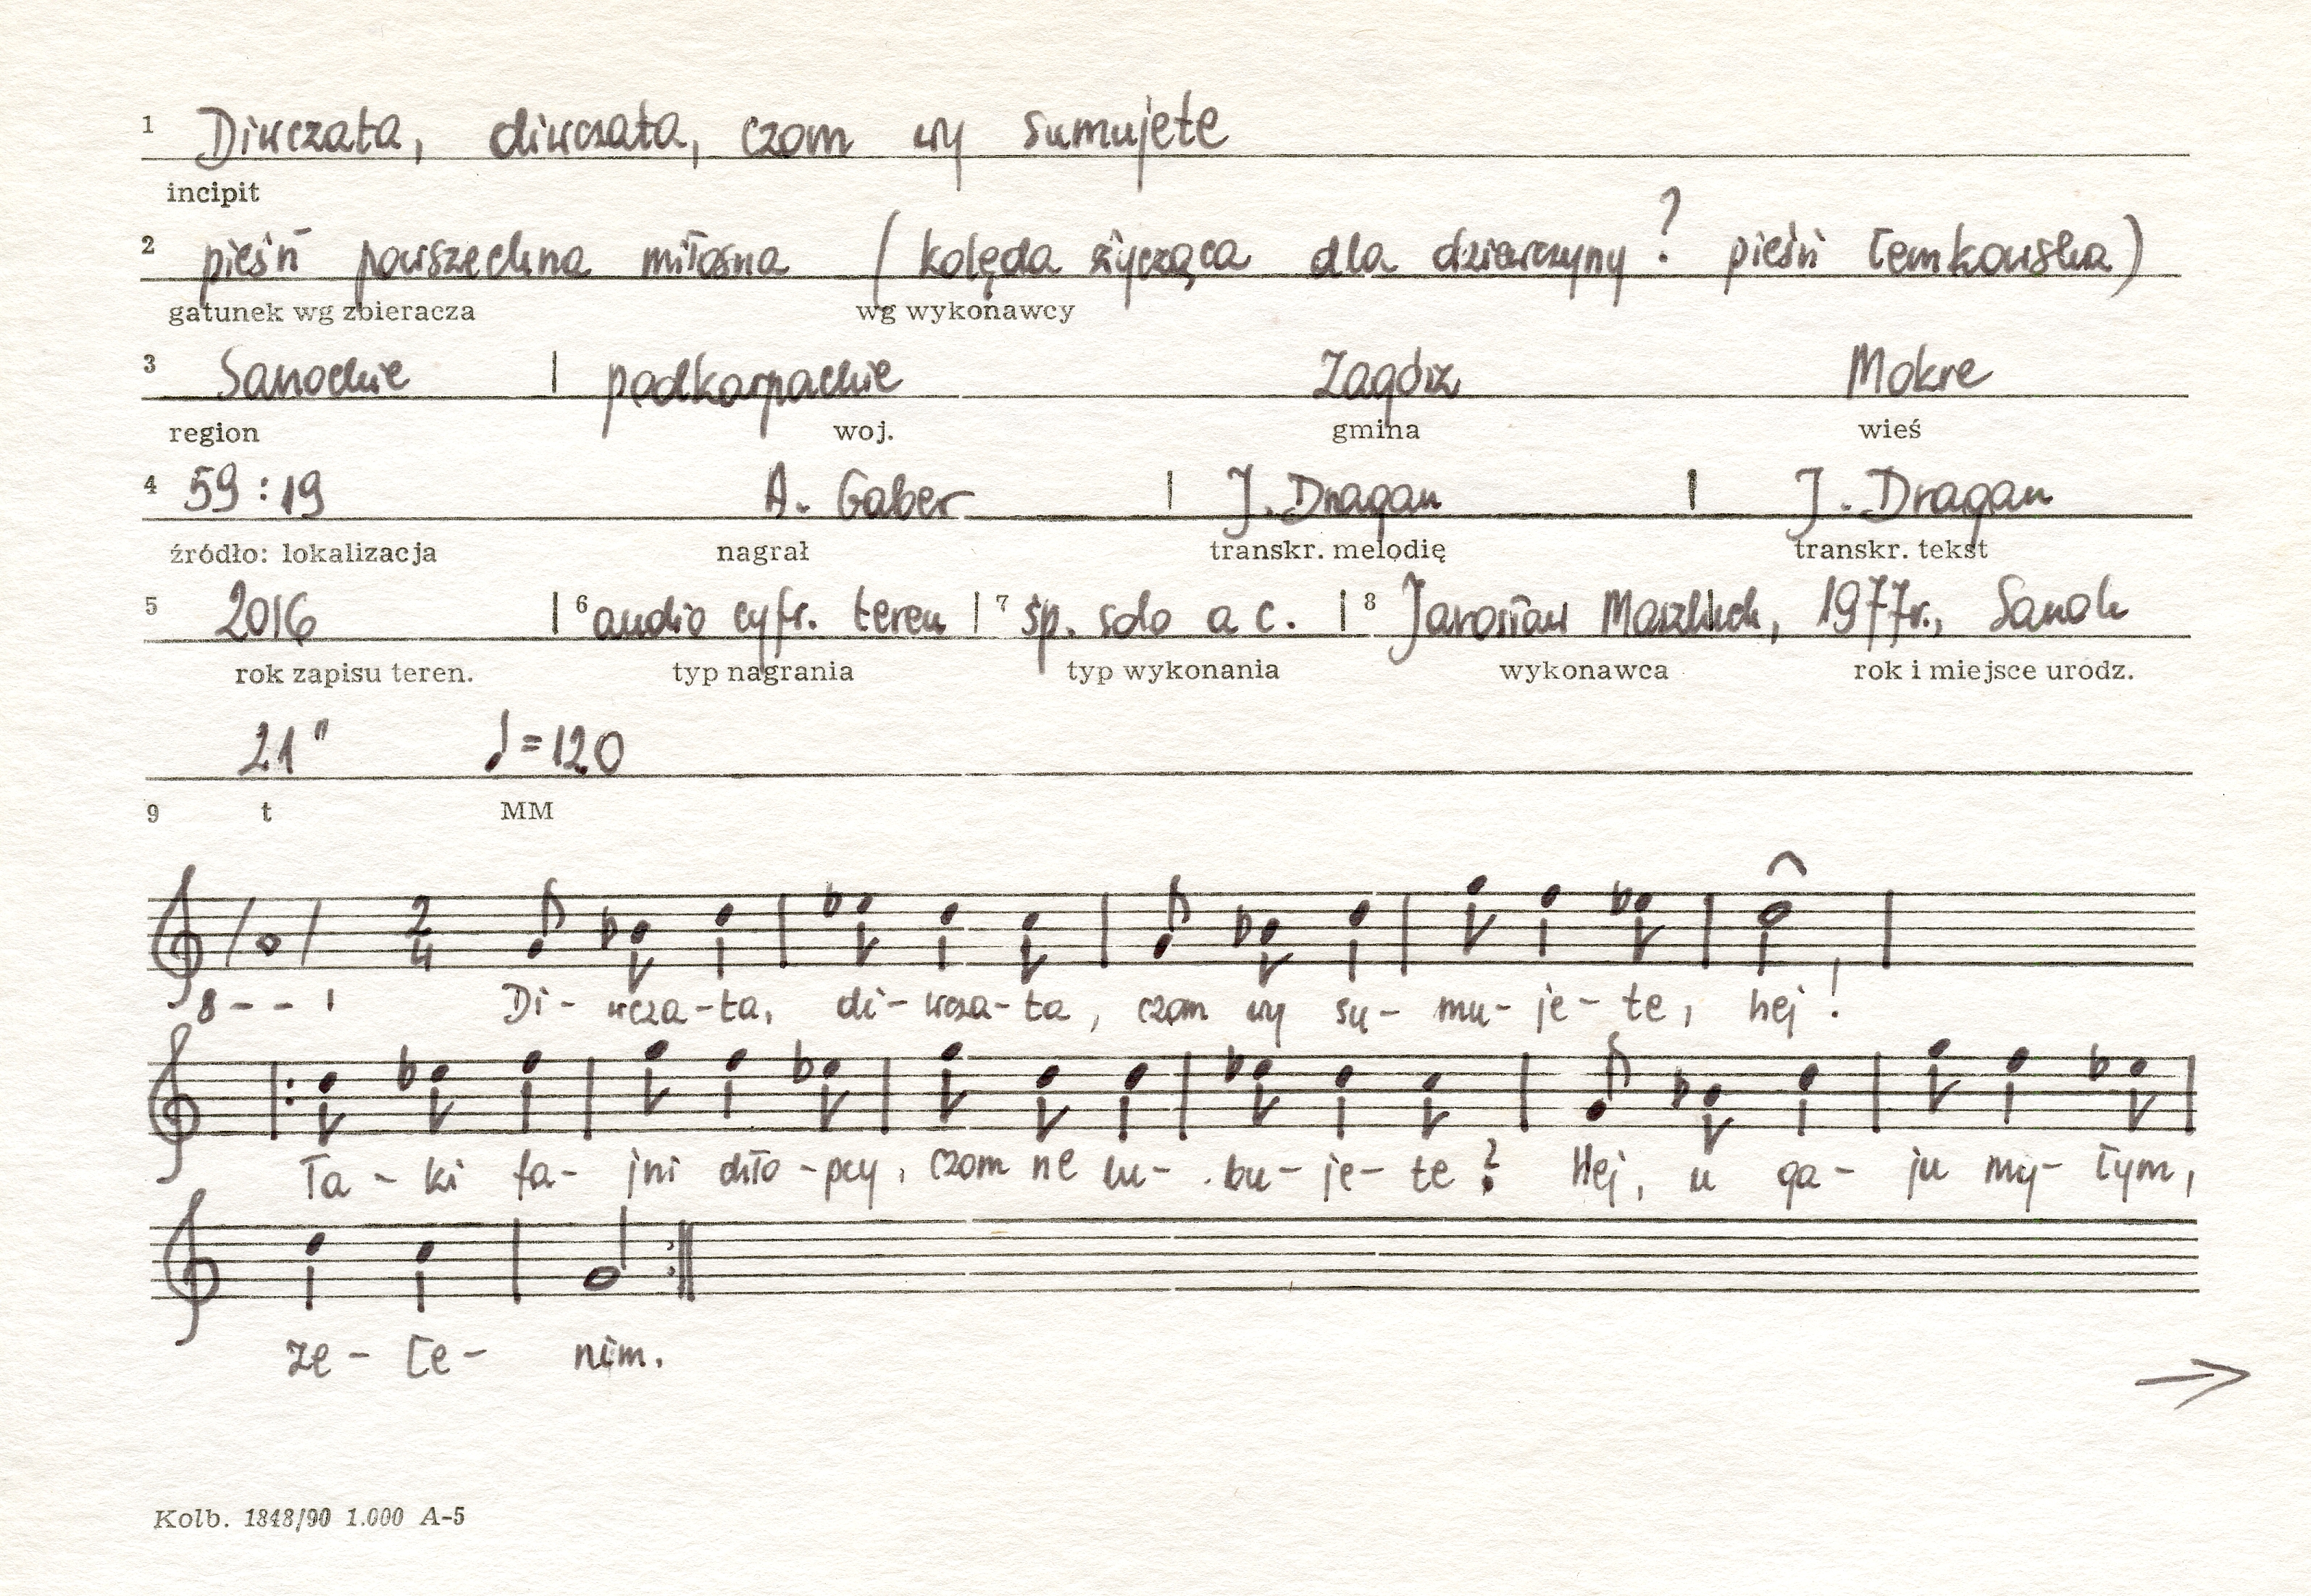 1 Diwczata, diwczata, czom wy sumujete
incipit
2 pieśń powszechna miłosna (kolęda życząca dla dziewczyny? pieśń łemkowska)
gatunek wg zbieracza wg wykonawcy
3 Sanockie | podkarpackie Zagórz Mokre
region woj. gmina wieś
4 59:19 A. Gaber | J. Dragan | J. Dragan
źródło: lokalizacja nagrał transkr. melodię transkr. tekst
5 2016 | 6 audio cyfr. teren | 7 śp. solo a c. | 8 Jarosław 1977r., Sanok
rok zapisu teren. typ nagrania typ wykonania wykonawca rok i miejsce urodz.
21" ♩=120
9 t MM
2/4
8 - - ı Di - wcza - ta, di - wcza - ta, czom wy su - mu - je - te, hej!
Ta - ki fa - jni chło - pcy, czom ne lu - bu - je - te? Hej, u ga - ju my - łym,
ze - łe - nim.
→
Kolb. 1848/90 1.000 A-5